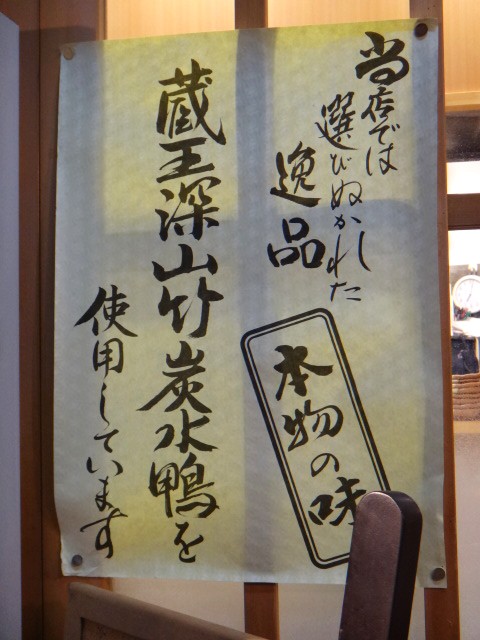 当店では
選びぬかれた
逸品
本物の味
蔵王深山竹炭水鴨を
使用しています